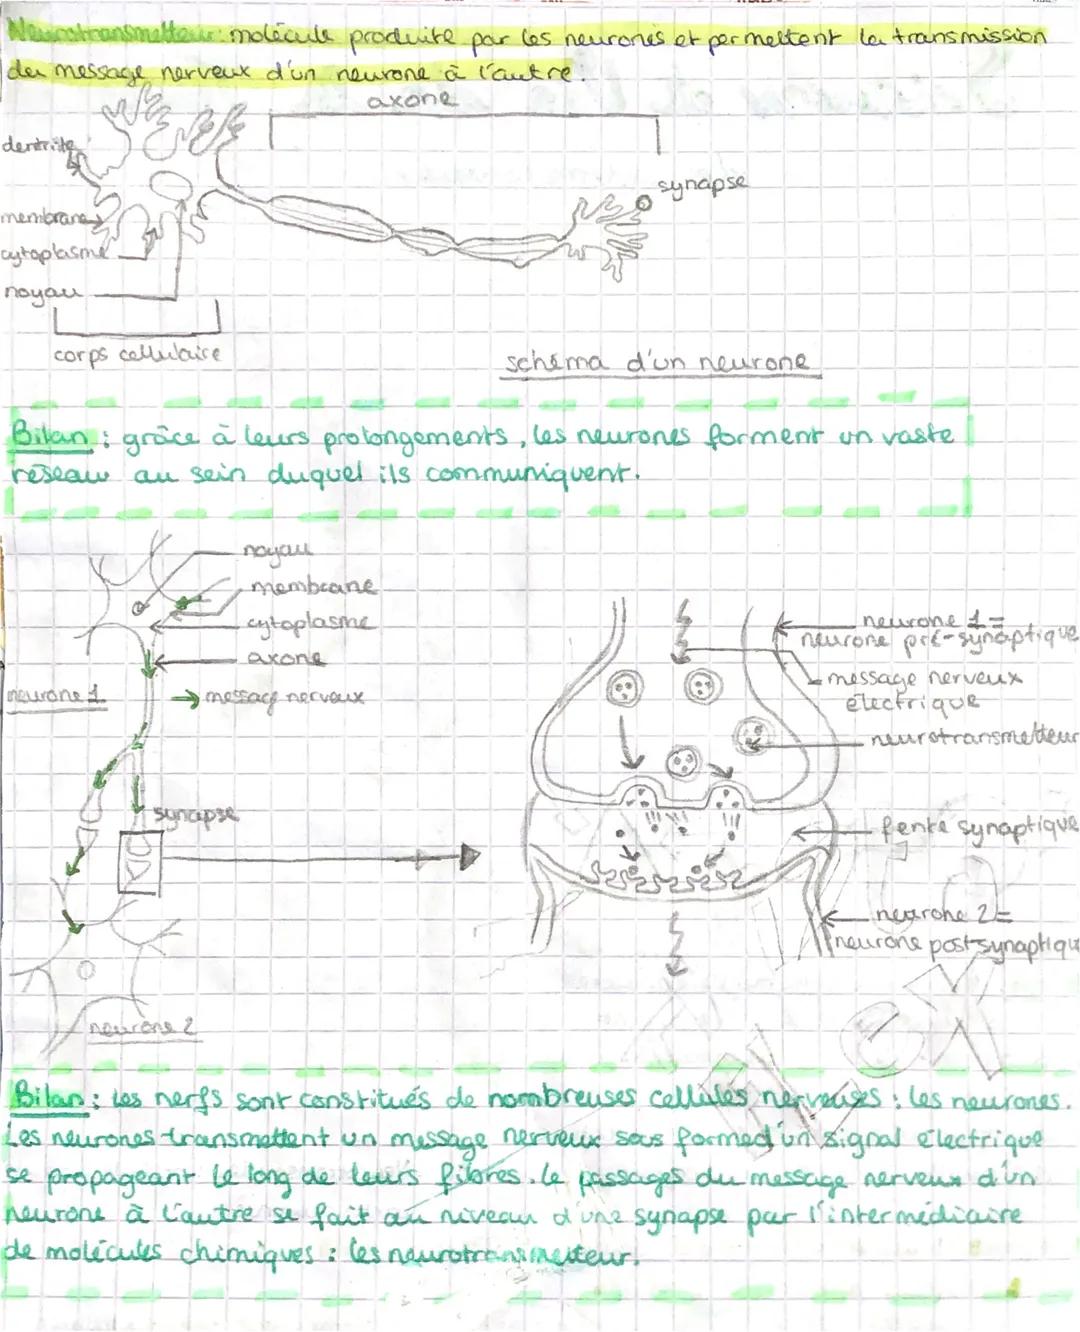 Neurotransmetteur: molécule produite par les neurones et permettent la transmission
du message nerveux d'un neurone à l'autre.
axone
dentrite
synapse
membrane
cytoplasme
noyau
corps cellulaire
schéma d'un neurone
Bilan : grâce à leurs prolongements, les neurones forment un vaste
réseau au sein duquel ils communiquent.
noyau
membrane
cytoplasme
axone
neurone 1
→ message nerveux
synapse
neurone 2
neurone 1 =
neurone pré-synaptique
message nerveux
électrique
neurotransmetteur
fente synaptique
neurone 2 =
neurone postsynaptiqu
Bilan : les nerfs sont constitués de nombreuses cellules nerveuses : les neurones.
Les neurones transmettent un message nerveux sous formed'un signal électrique
se propageant le long de leurs fibres. Le passages du message nerveux d'un
neurone à l'autre se fait au niveau d'une synapse par l'intermédiaire
de molécules chimiques : les neurotransmetteur.